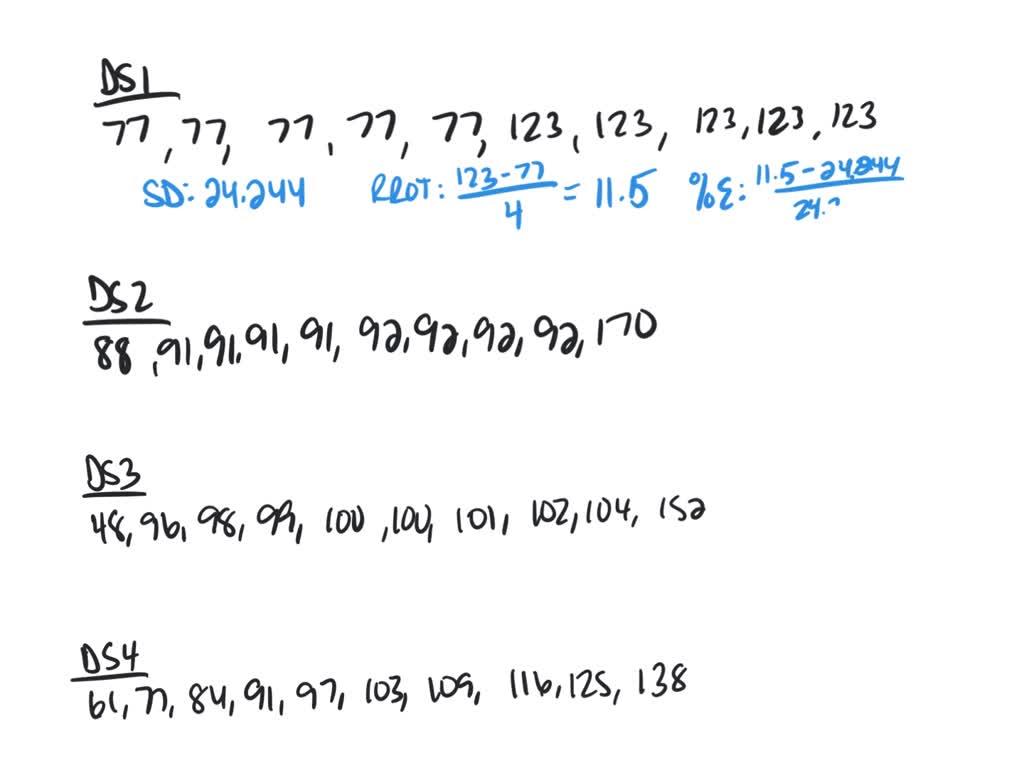 DS1
77, 77, 77, 77, 77, 123, 123, 123, 123, 123
SD: 24.244 RROT: 123-77/4 = 11.5 %ε: 11.5-24.244/24.2
DS2
88, 91, 91, 91, 91, 92, 92, 92, 92, 170
DS3
48, 96, 98, 99, 100, 100, 101, 102, 104, 152
DS4
61, 77, 84, 91, 97, 103, 109, 116, 125, 138